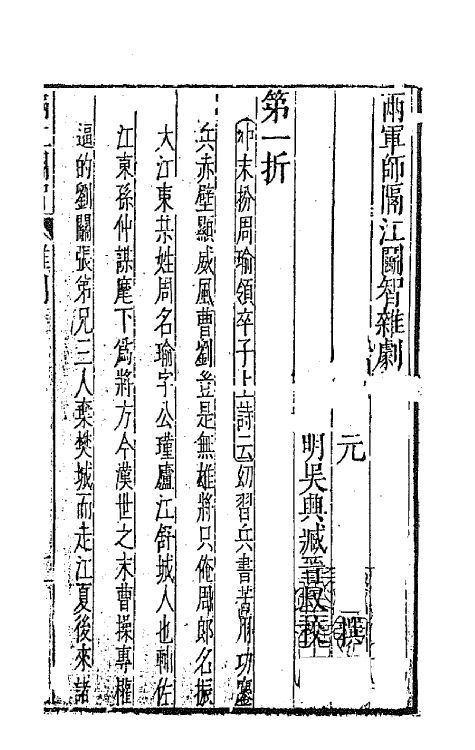 兩軍師隔江鬭智雜劇
元 撰
明吳興臧晉叔校
第一折
冲末扮周瑜領卒子上詩云幼習兵書苦用功鏖
兵赤壁顯威風曹劉豈是無雄將只俺周郎名振
大江東某姓周名瑜字公瑾廬江舒城人也輔佐
江東孫仲謀麾下爲將方今漢世之末曹操專權
逼的劉關張弟兄三人棄樊城而走江夏後來諸